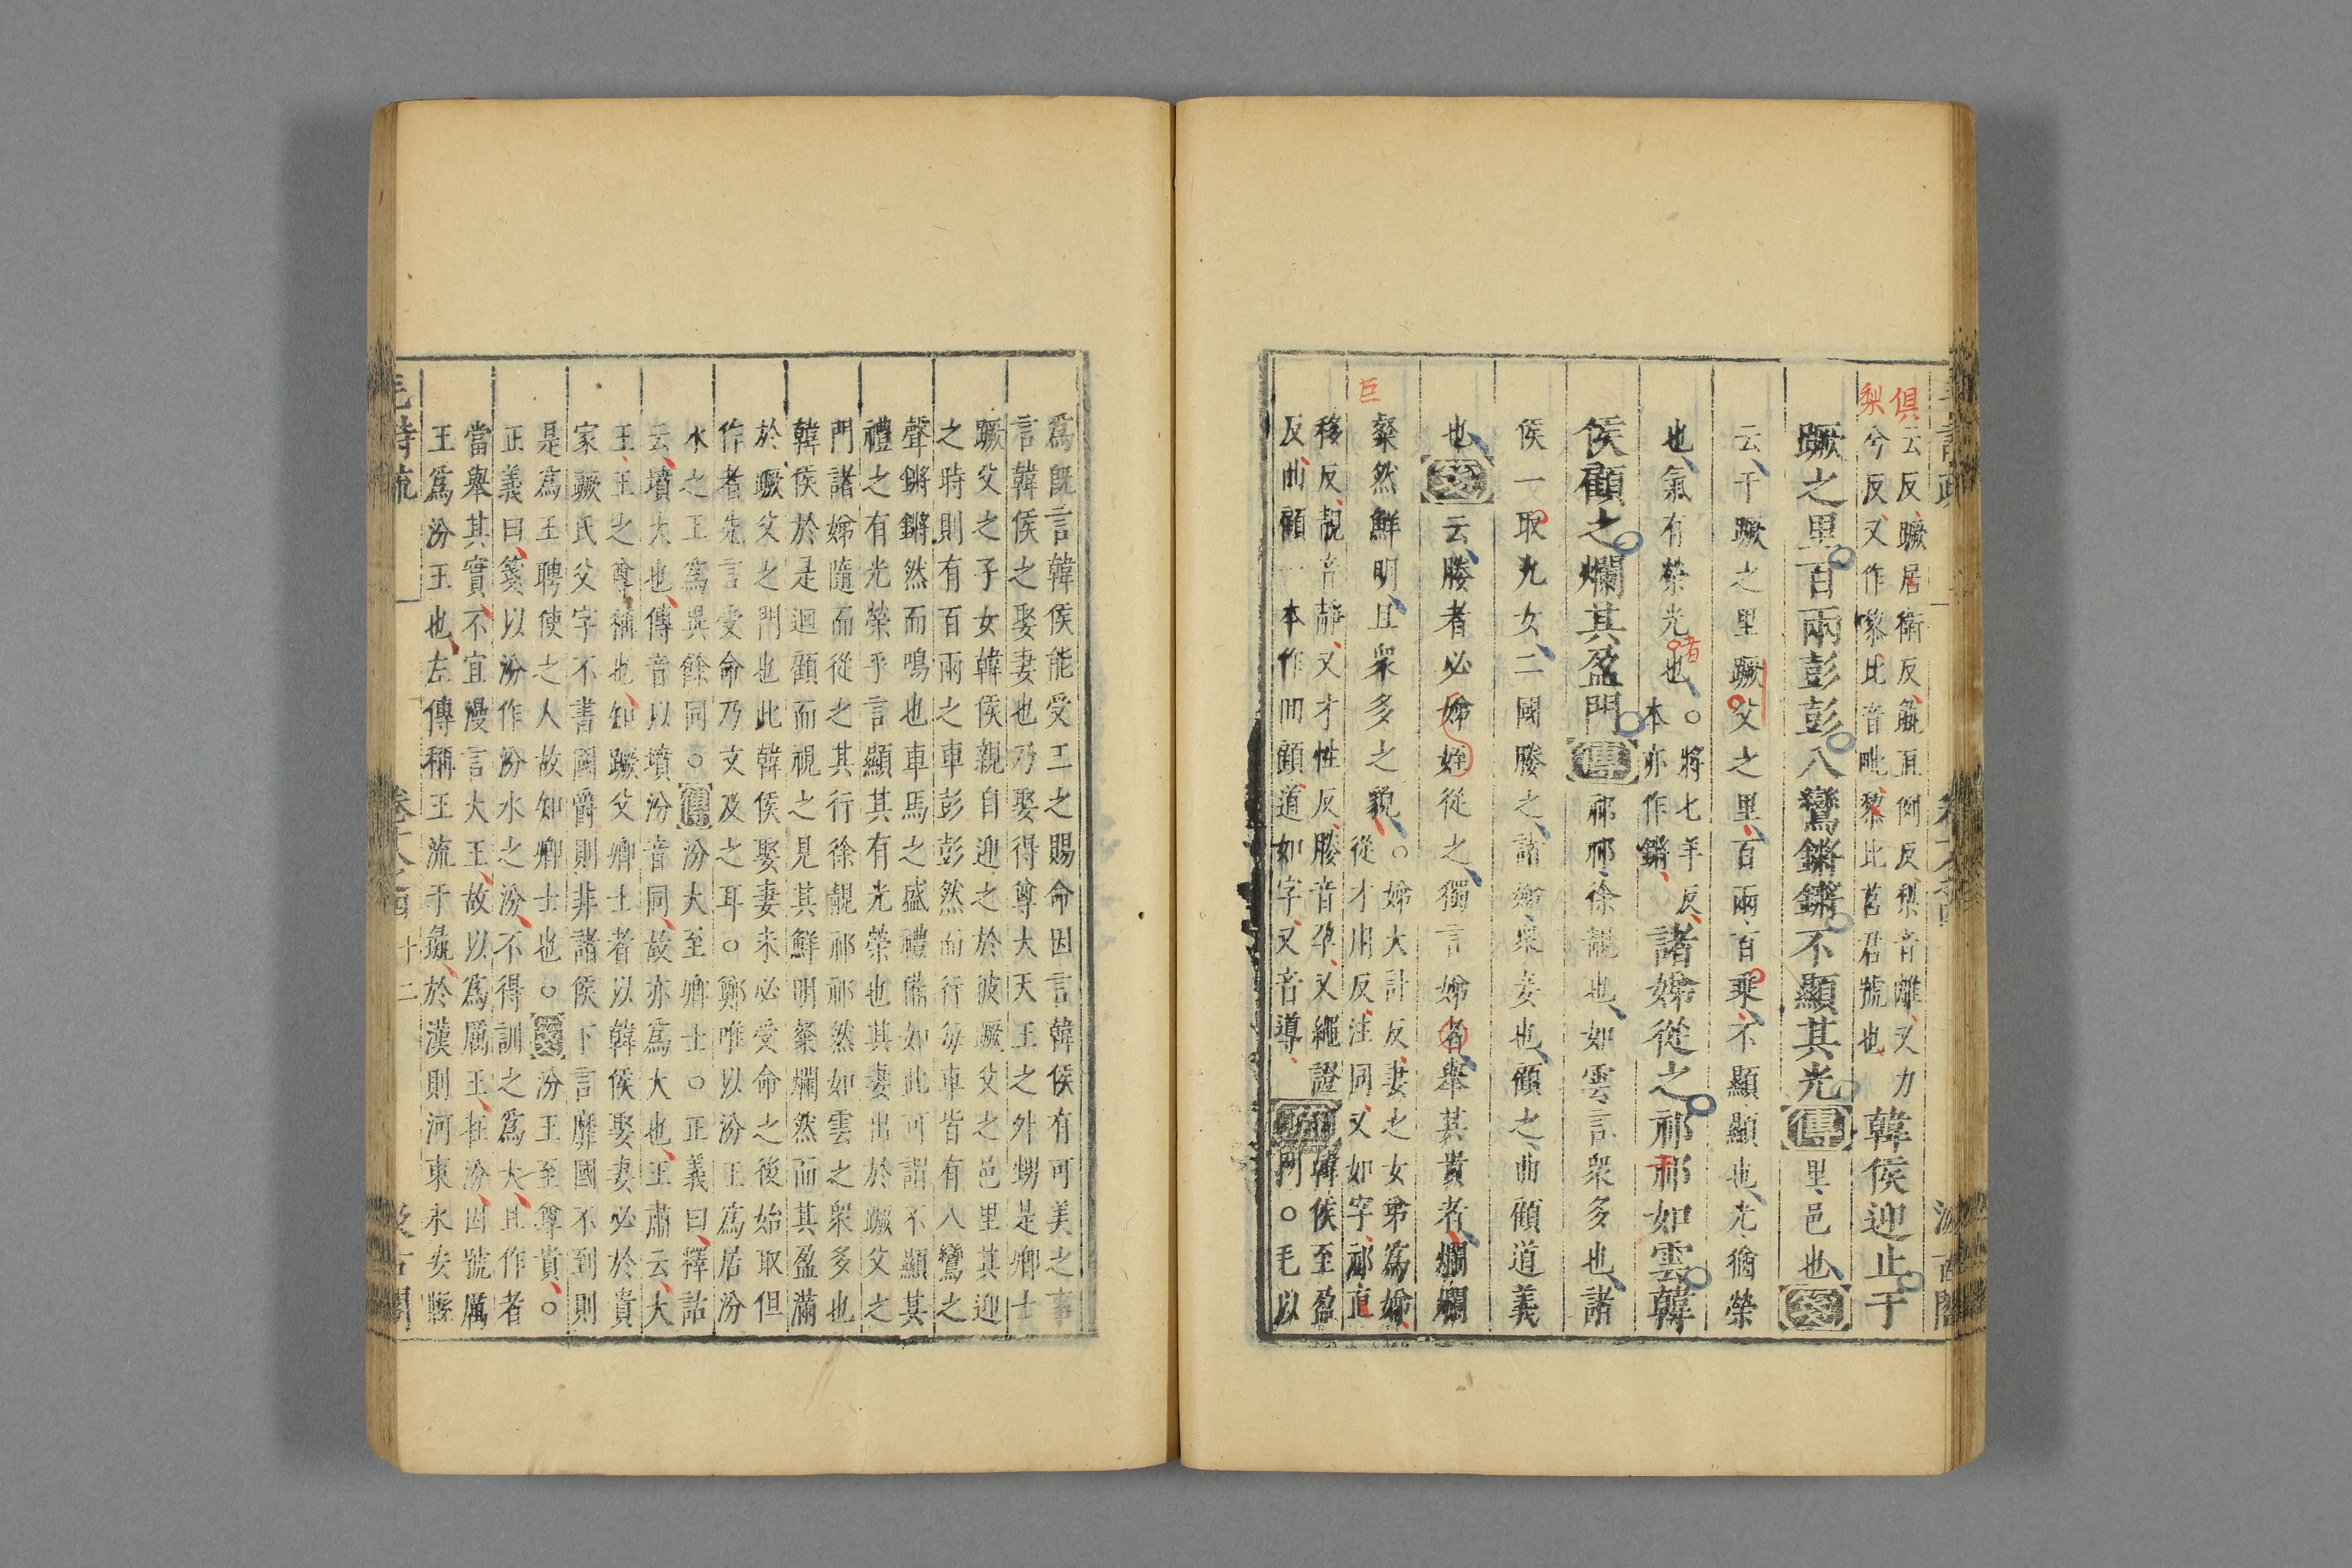 俱云反蹶居衛反厥亙例反梨音離又力
梨兮反又作黎比音毗黎比莒君號也
韓侯迎止于
蹶之里百兩彭彭八鸞鏘鏘不顯其光傳里邑也箋
云于蹶之里蹶父之里百兩百乘不顯顯也光猶榮
也氣有榮光也者
○將七羊反
本亦作鏘
諸娣從之祁祁如雲韓
侯顧之爛其盈門傳祁祁徐靚也如雲言衆多也諸
侯一取九女二國媵之諸娣衆妾也顧之曲顧道義
也箋云媵者必娣姪從之獨言娣者舉其貴者爛爛
粲然鮮明且衆多之貌
巨
○娣大計反妻之女弟爲娣
從才用反注同又如字祁直
移反靚音靜又才性反媵音孕又繩證
反曲顧一本作回顧道如字又音導
疏
韓侯至盈
門○毛以
爲既言韓侯能受王之賜命因言韓侯有可美之事
言韓侯之娶妻也乃娶得尊大天王之外甥是卿士
蹶父之子女韓侯親自迎之於彼蹶父之邑里其迎
之時則有百兩之車彭彭然而行每車皆有八鸞之
聲鏘鏘然而鳴也車馬之盛禮備如此可謂不顯其
禮之有光榮乎言顯其有光榮也其妻出於蹶父之
門諸娣隨而從之其行徐靚祁祁然如雲之衆多也
韓侯於是迴顧而視之見其鮮明粲爛然而其盈滿
於蹶父之門也此韓侯娶妻未必受命之後始取但
作者先言受命乃文及之耳○鄭唯以汾王爲居汾
水之王爲異餘同○傳汾大至卿士○正義曰釋詁
云墳大也傳音以墳汾音同故亦爲大也王肅云大
王王之尊稱也知蹶父卿士者以韓侯娶妻必於貴
家蹶氏父字不書國爵則非諸侯下言靡國不到則
是爲王聘使之人故知卿士也○箋汾王至尊貴○
正義曰箋以汾作汾水之汾不得訓之爲大且作者
當舉其實不宜漫言大王故以爲厲王在汾因號厲
王爲汾王也左傳稱王流于彘於漢則河東永安縣
毛詩疏
卷十八之四
十二
汲古閣